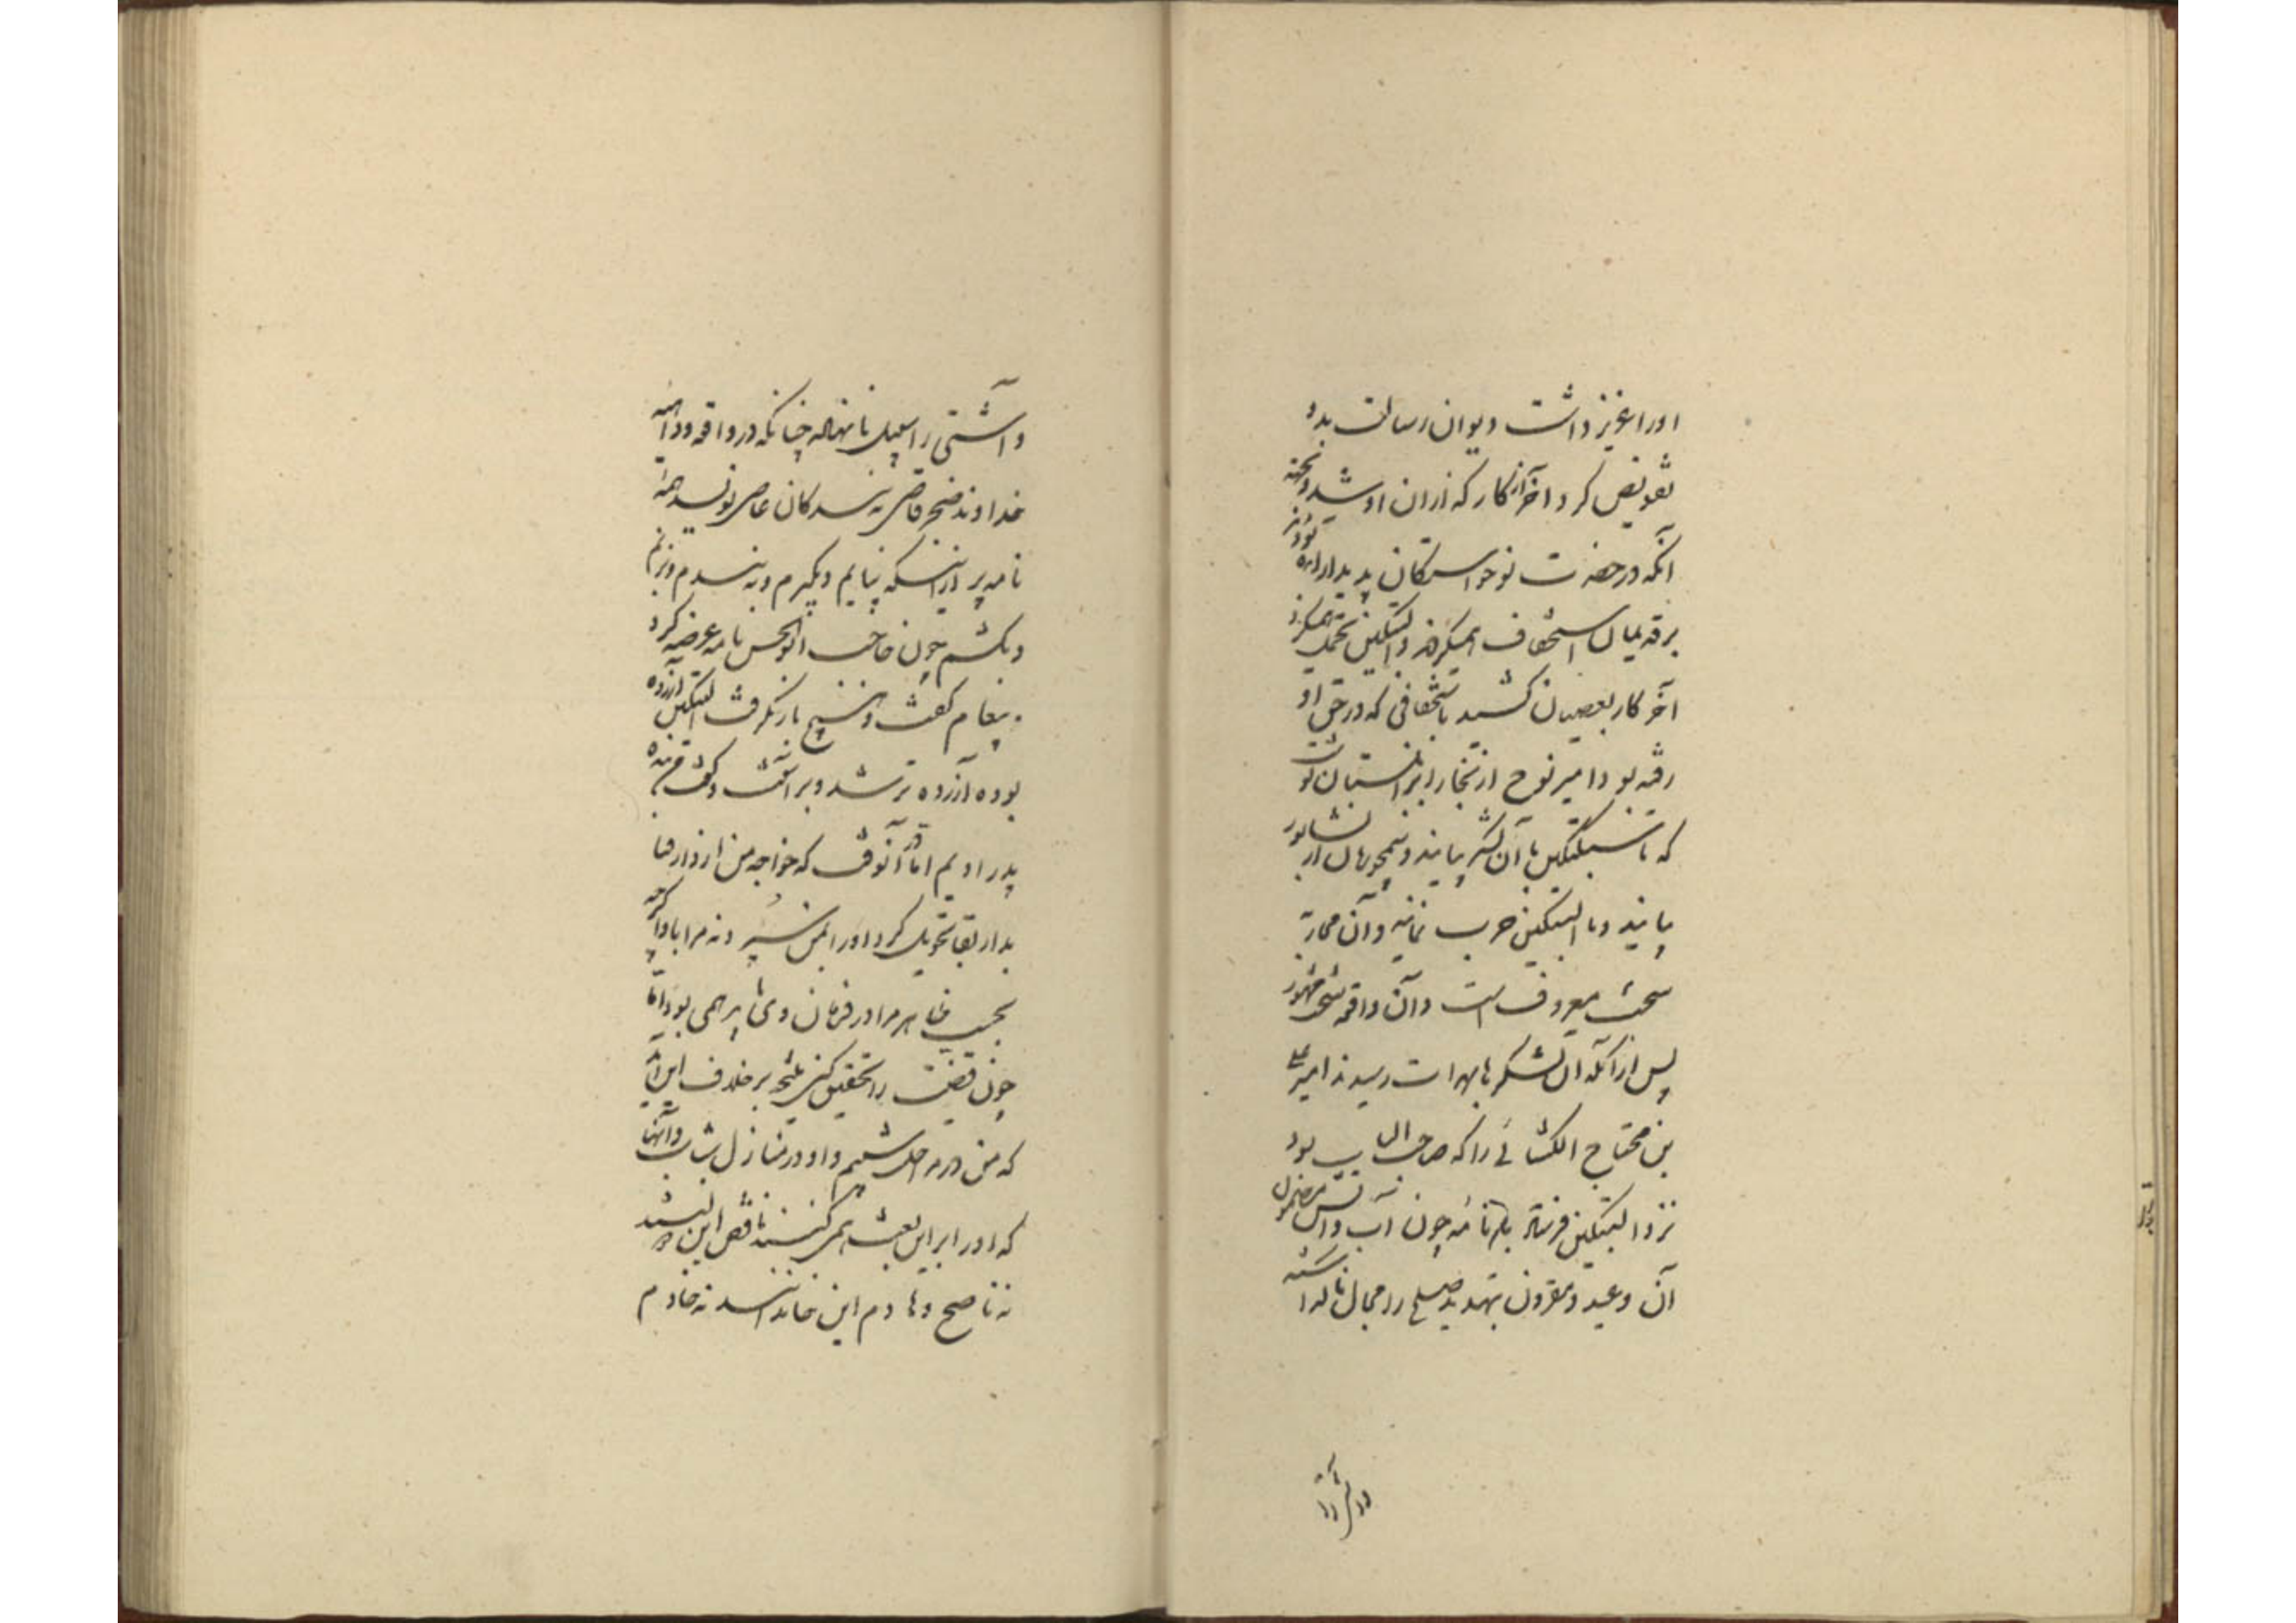 اورا عزیز داشت و دیوان رسالت بدو
تفویض کرد و آخر از کار که از ان او شد و نتیجه
آنکه در حضرت نوخواستگان پدیدار آمده بودند و بر
برقدیمان استخفاف همیکردند و الپتکین تحمل همیکرد
آخر کار بعصیان کشید باستخفافی که در حق او
رفته بود و امیر نوح از بخارا بزاولستان نوشت
که تا سبکتکین با آن لشکر بیایند و سیمجوریان از نشابور
بیایند و با الپتکین حرب نمایند و آن محاربه
سخت معروف است و آن واقعه سخت مشهور
پس از آنکه آن لشکرها بهرات رسیدند امیر علی
بن محتاج الکشانی را که حاجب الباب بود
نزد الپتکین فرستاد با نامه چون آب و آتش مضمون
آن وعید و مقرون بتهدید صلح را مجال ناگذاشته
و آشتی را سبیل نا نهاده چنانکه در واقعه و داهیه
خداوند ضجر قاصی به بندگان عاصی نویسد همه
نامه پر از اینکه بیایم و بگیرم و به بندم و بزنم
و بکشم چون حاجب ابوالحسن نامه عرضه کرد
و پیغام گفت و هیچ باز نگرفت الپتکین آزرده
بوده آزرده تر شد و بر آشفت و گفت من بنده
پدر اویم اما آنوقت که خواجه من از دار فنا
بدار بقا تحویل کرد اورا بمن سپرد نه مرا باو و اگرچه
بحسب ظاهر مرا در فرمان وی می باید بود اما
چون قضیت را تحقیق کنی نتیجه بر خلاف این آید
که من در مراحل شیبم و او در منازل شباب و آنها
که اورا بر این بعث همی کنند ناقض این دولتند
نه ناصح و هادم این خاندانند نه خادم